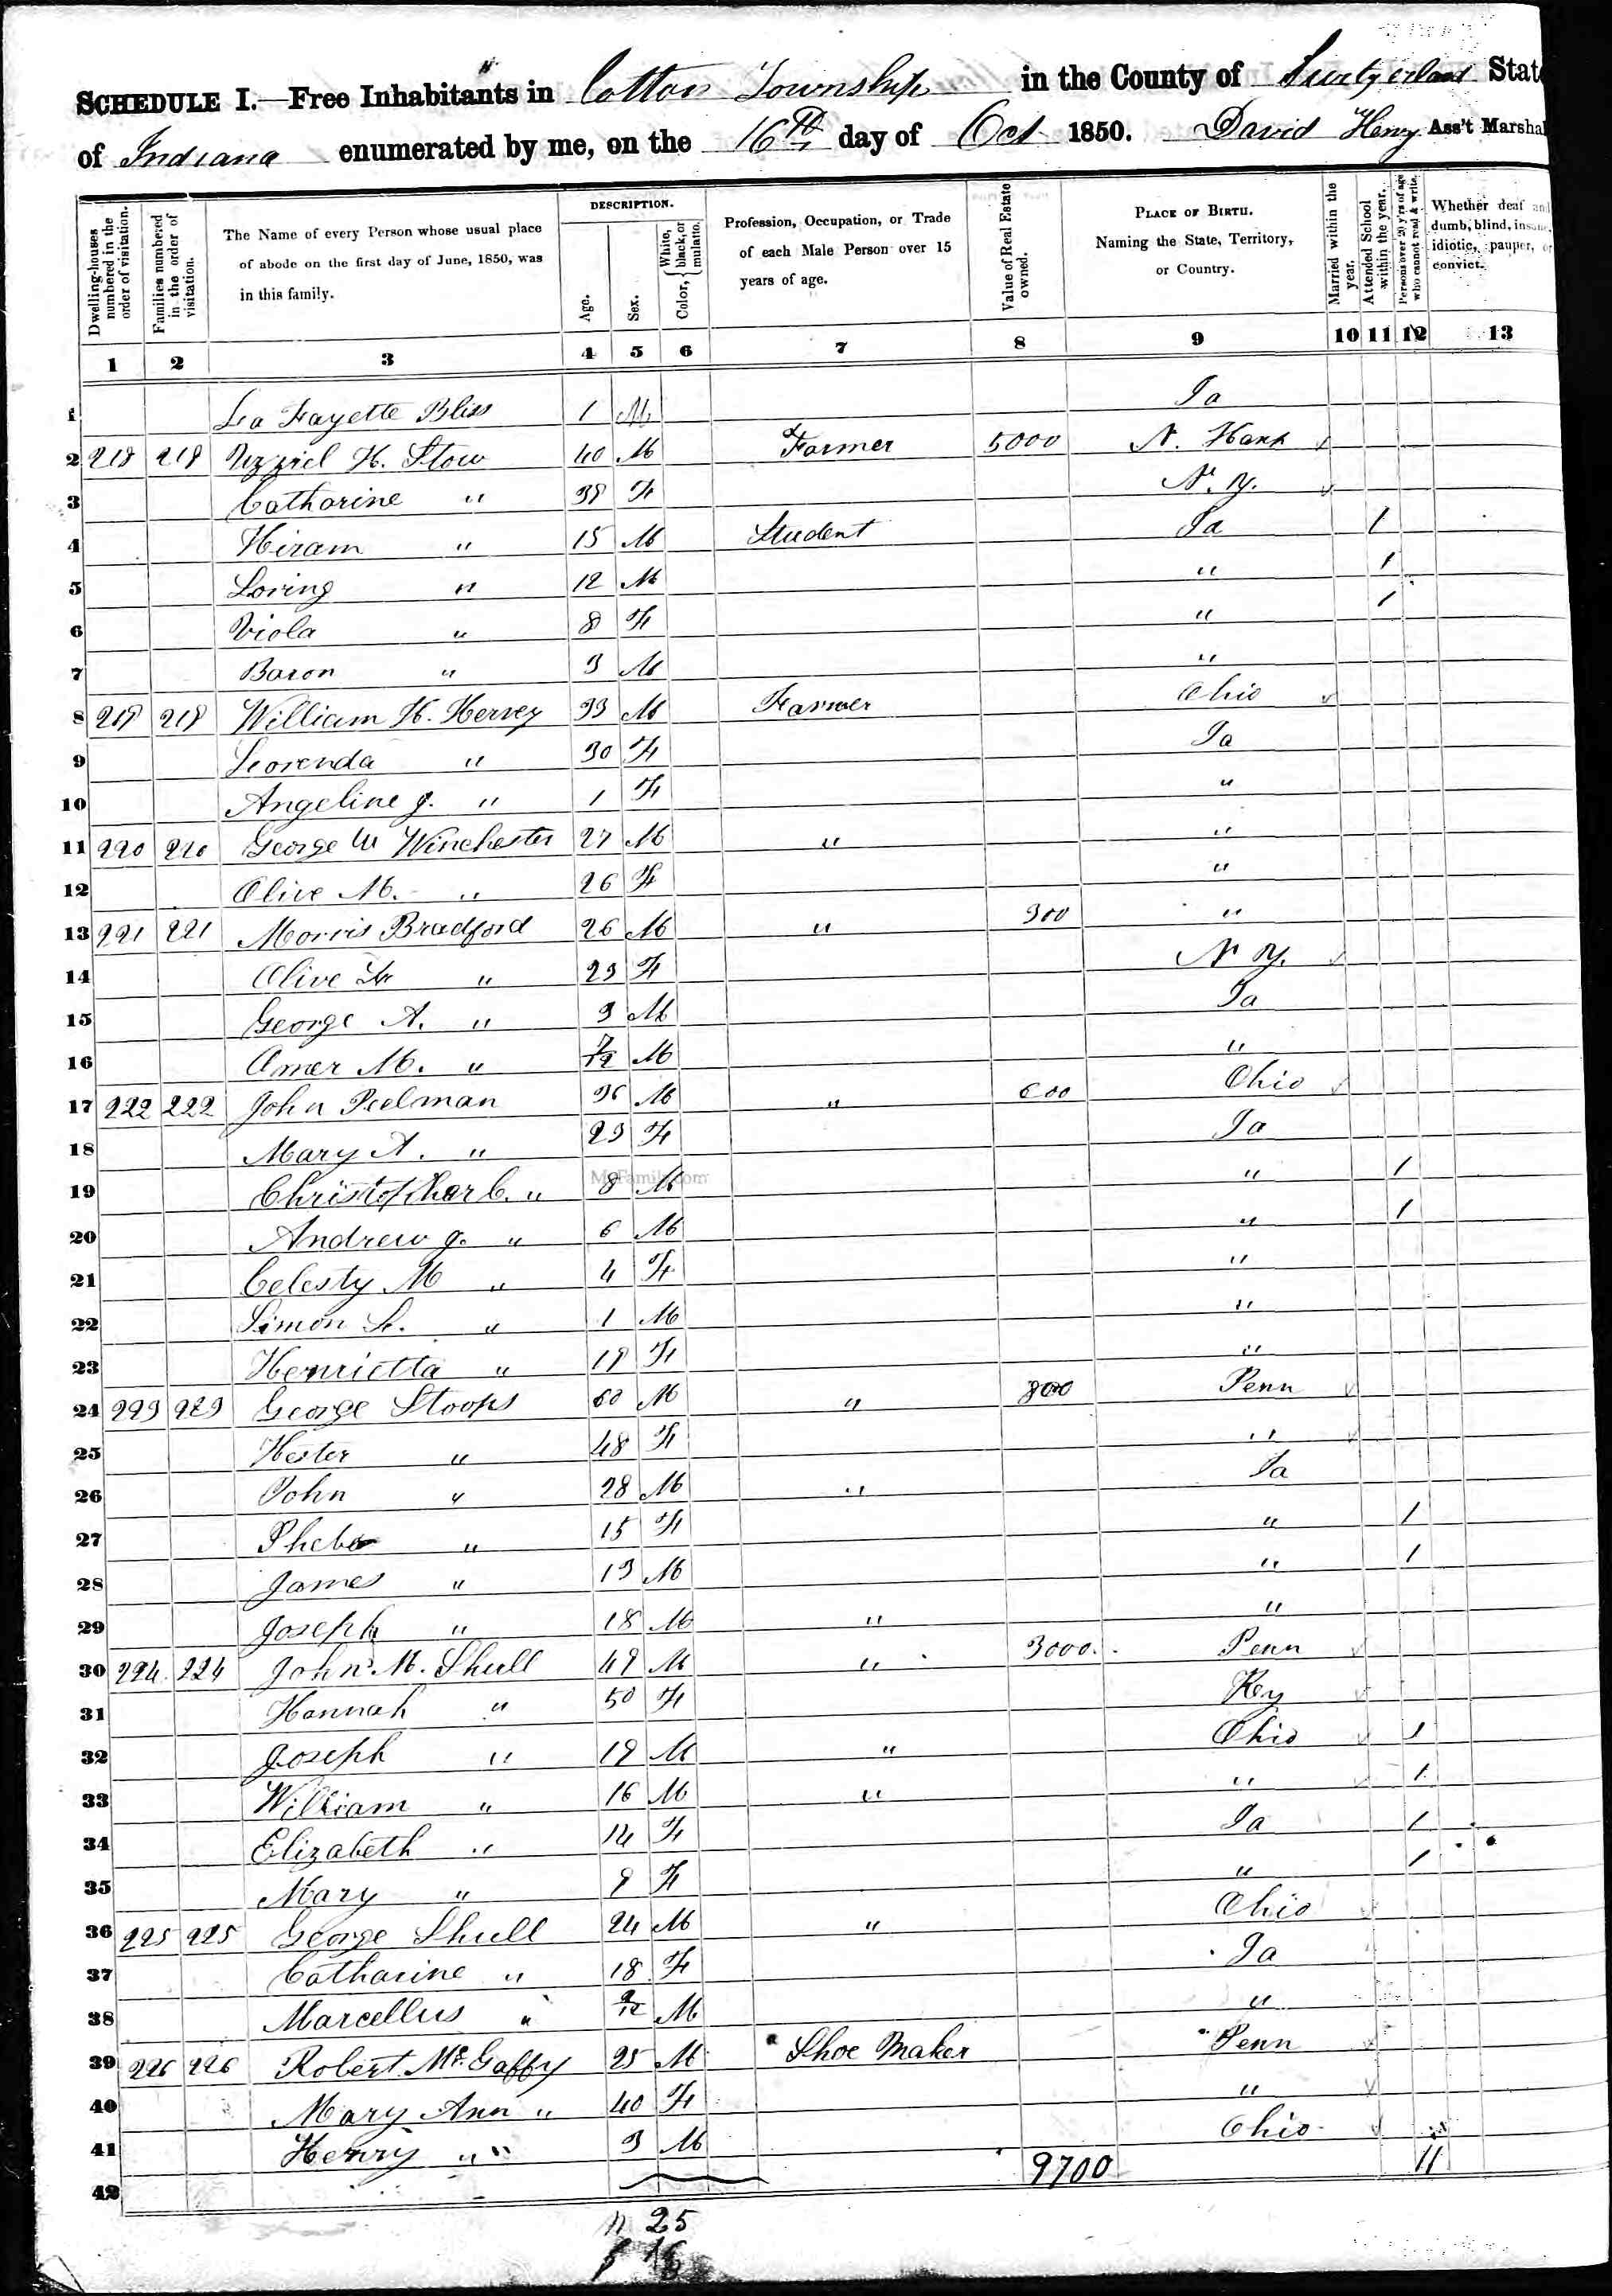 SCHEDULE I.—Free Inhabitants in Cotton Township in the County of Switzerland State
of Indiana enumerated by me, on the 16th day of Oct 1850. David Henry Ass't Marshal
Dwelling-houses numbered in the order of visitation.
Families numbered in the order of visitation.
The Name of every Person whose usual place of abode on the first day of June, 1850, was in this family.
DESCRIPTION.
Age.
Sex.
Color, { White, black, or mulatto.
Profession, Occupation, or Trade of each Male Person over 15 years of age.
Value of Real Estate owned.
PLACE OF BIRTH. Naming the State, Territory, or Country.
Married within the year.
Attended School within the year.
Persons over 20 y'rs of age who cannot read & write.
Whether deaf and dumb, blind, insane, idiotic, pauper, or convict.
1 2 3 4 5 6 7 8 9 10 11 12 13
1 La Fayette Bliss 1 M Ia
2 218 218 Uzziel H. Stow 40 M Farmer 5000 N. Hamp
3 Catharine " 38 F N. Y.
4 Hiram " 15 M Student Ia 1
5 Loring " 12 M " 1
6 Viola " 8 F " 1
7 Baron " 3 M "
8 219 219 William H. Hervey 33 M Farmer Ohio
9 Lorenda " 30 F Ia
10 Angeline J. " 1 F "
11 220 220 George W Winchester 27 M " "
12 Olive M. " 26 F "
13 221 221 Morris Bradford 26 M " 300 "
14 Olive " 23 F N Y.
15 George A. " 3 M Ia
16 Amer M. " 7/12 M "
17 222 222 John Peelman 36 M " 600 Ohio
18 Mary A. " 23 F Ia
19 Christopher C. " 8 M " 1
20 Andrew J. " 6 M " 1
21 Celesty M " 4 F "
22 Simon S. " 1 M "
23 Henrietta " 19 F "
24 223 223 George Stoops 60 M " 800 Penn
25 Hester " 48 F "
26 John " 28 M " Ia
27 Phebe " 15 F " 1
28 James " 13 M " 1
29 Joseph " 18 M " "
30 224 224 John M. Shull 49 M " 3000 Penn
31 Hannah " 50 F Key
32 Joseph " 19 M " Ohio 1
33 William " 16 M " " 1
34 Elizabeth " 14 F Ia 1
35 Mary " 9 F " 1
36 225 225 George Shull 24 M " Ohio
37 Catharine " 18 F Ia
38 Marcellus " M "
39 226 226 Robert McGaffy 25 M Shoe Maker Penn
40 Mary Ann " 40 F "
41 Henry " " 3 M Ohio
42 9700 11
25
16